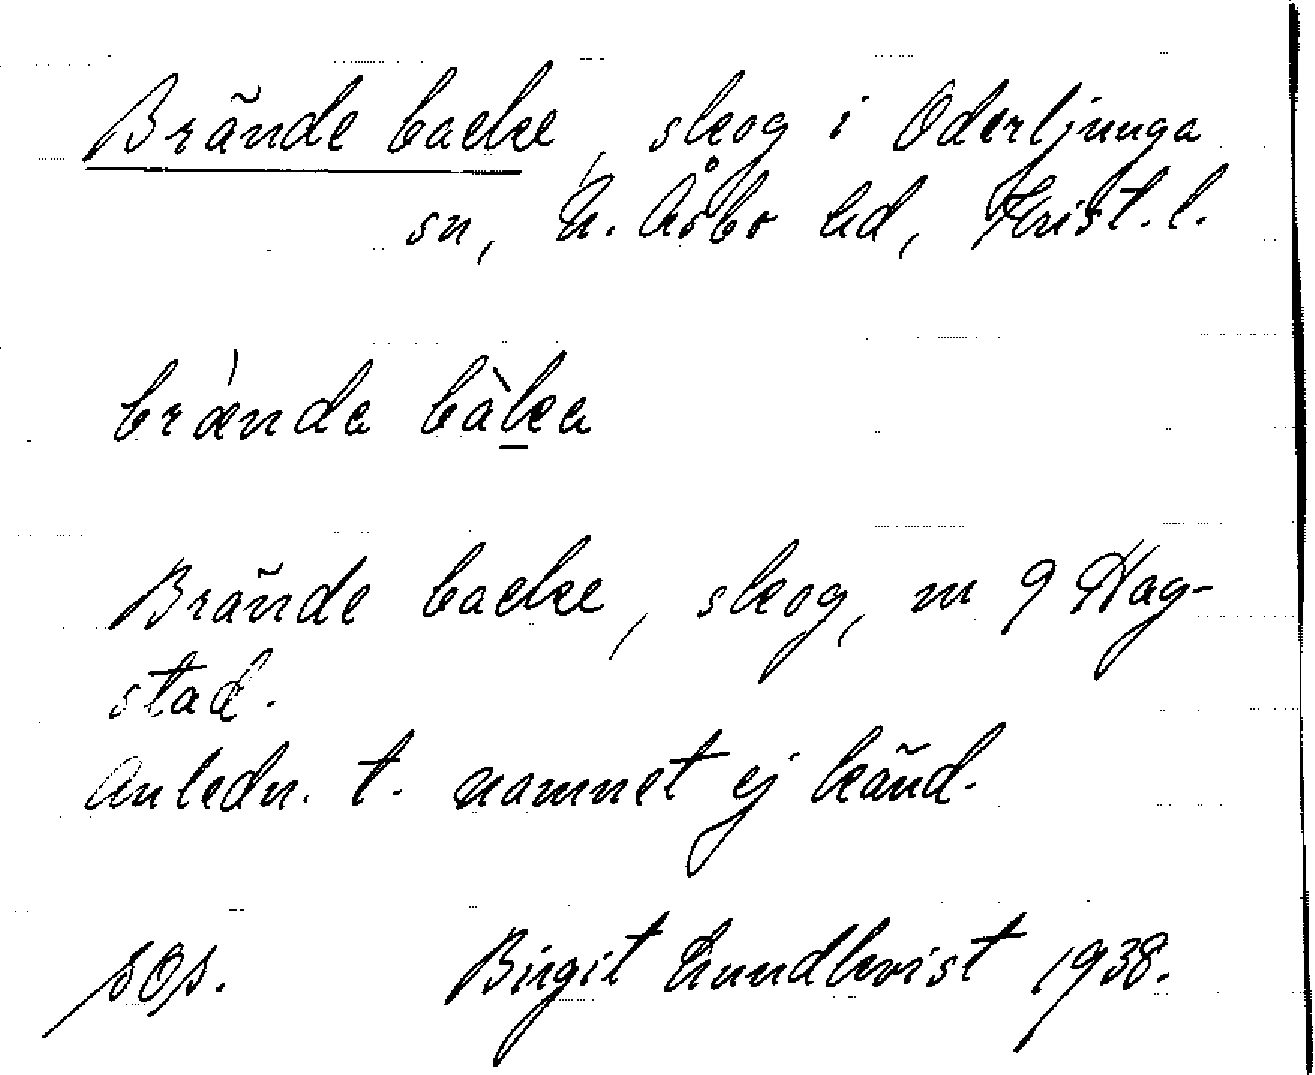 Brände backe, skog i Oderljunga
sn, N. Åsbo hd, Krist. l.
brænda bàka
Brände backe, skog, m 9 Hag-
stad.
Anledn. t. namnet ej känd.
SOS. Birgit Lundkvist 1938.